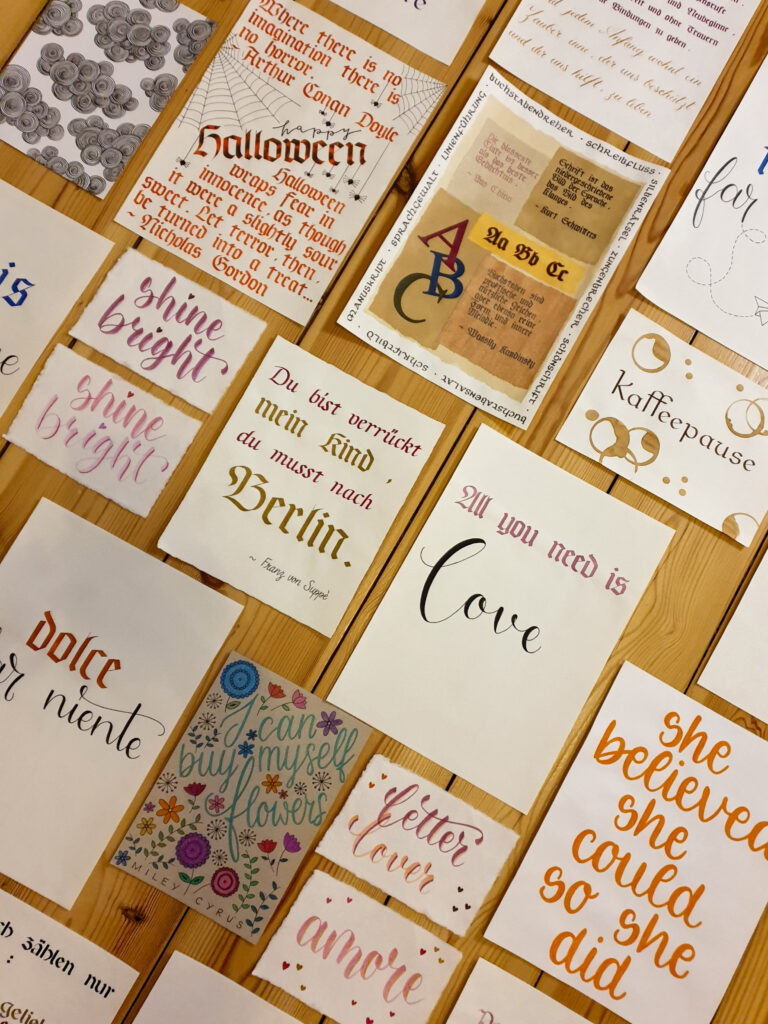 Where there is no
imagination there is
no horror.
~ Arthur Conan Doyle
happy
Halloween
Halloween
wraps fear in
innocence, as though
it were a slightly sour
sweet. Let terror, then,
be turned into a treat...
~ Nicholas Gordon
und Neubeginne
und ohne Trauern
Bindungen zu geben.
jedem Anfang wohnt ein
Zauber inne, der uns beschützt
und der uns hilft, zu leben.
buchstabendreher · schreibfluss · silbenrätsel · zungenbrecher · schönschrift
manuskript · sprachgewalt · linienführung
schriftbild · buchstabensalat
Die blasseste
Tinte ist besser
als das beste
Gedächtnis.
~ Aus China
Schrift ist das
niedergeschriebene
Bild der Sprache,
das Bild des
Klanges.
~ Kurt Schwitters
Aa Bb Cc
A
B
C
Buchstaben sind
praktische und
nützliche Zeichen
aber ebenso reine
Form und innere
Melodie.
~ Wassily Kandinsky
far
is
shine
bright
shine
bright
Du bist verrückt
mein Kind,
du musst nach
Berlin.
~ Franz von Suppé
Kaffeepause
All you need is
love
dolce
far niente
I can
buy myself
flowers
MILEY CYRUS
letter
lover
amore
she
believed
she
could
so she
did
zählen nur